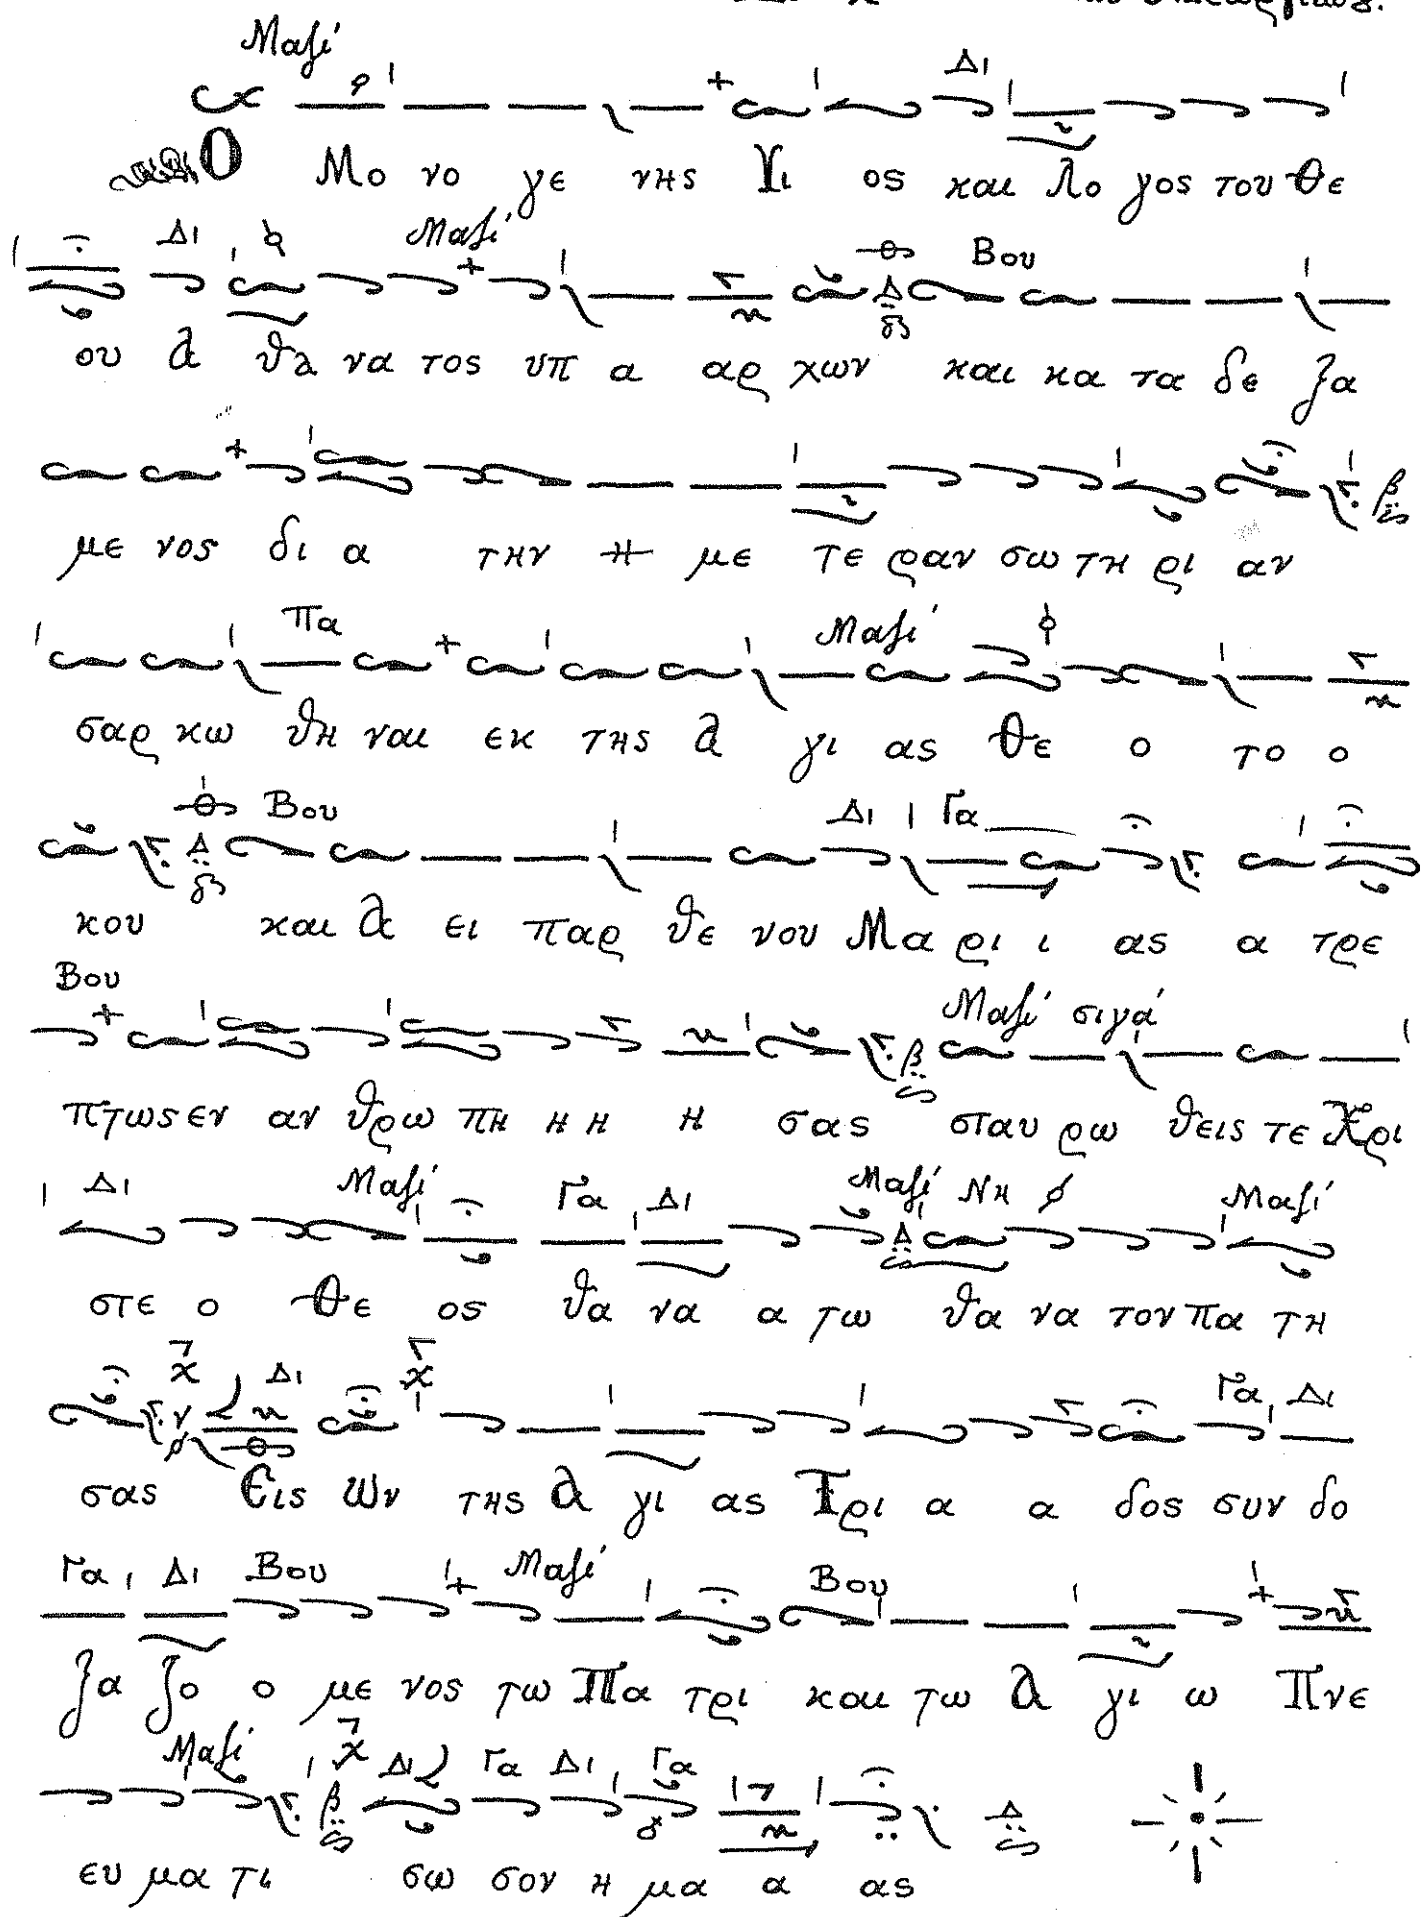 Μαζί
Δι
Ο Μο νο γε νης Υι ος και Λο γος του Θε
Δι Μαζί Βου
ου α θα να τος υπ α αρ χων και κα τα δε ξα
με νος δι α την η με τε ραν σω τη ρι αν
Πα Μαζί
σαρ κω θη ναι εκ της α γι ας Θε ο το ο
Βου Δι Γα
κου και α ει παρ θε νου Μα ρι ι ας α τρε
Βου Μαζί σιγά
πτως εν αν θρω πη η η η σας σταυ ρω θεις τε Χρι
Δι Μαζί Γα Δι Μαζί Νη Μαζί
στε ο Θε ος θα να α τω θα να τον πα τη
Δι Γα Δι
σας Εις Ων της α γι ας Τρι α α δος συν δο
Γα Δι Βου Μαζί Βου
ξα ζο ο με νος τω Πα τρι και τω α γι ω Πνε
Μαζί Δι Γα Δι Γα
ευ μα τι σω σον η μα α ας